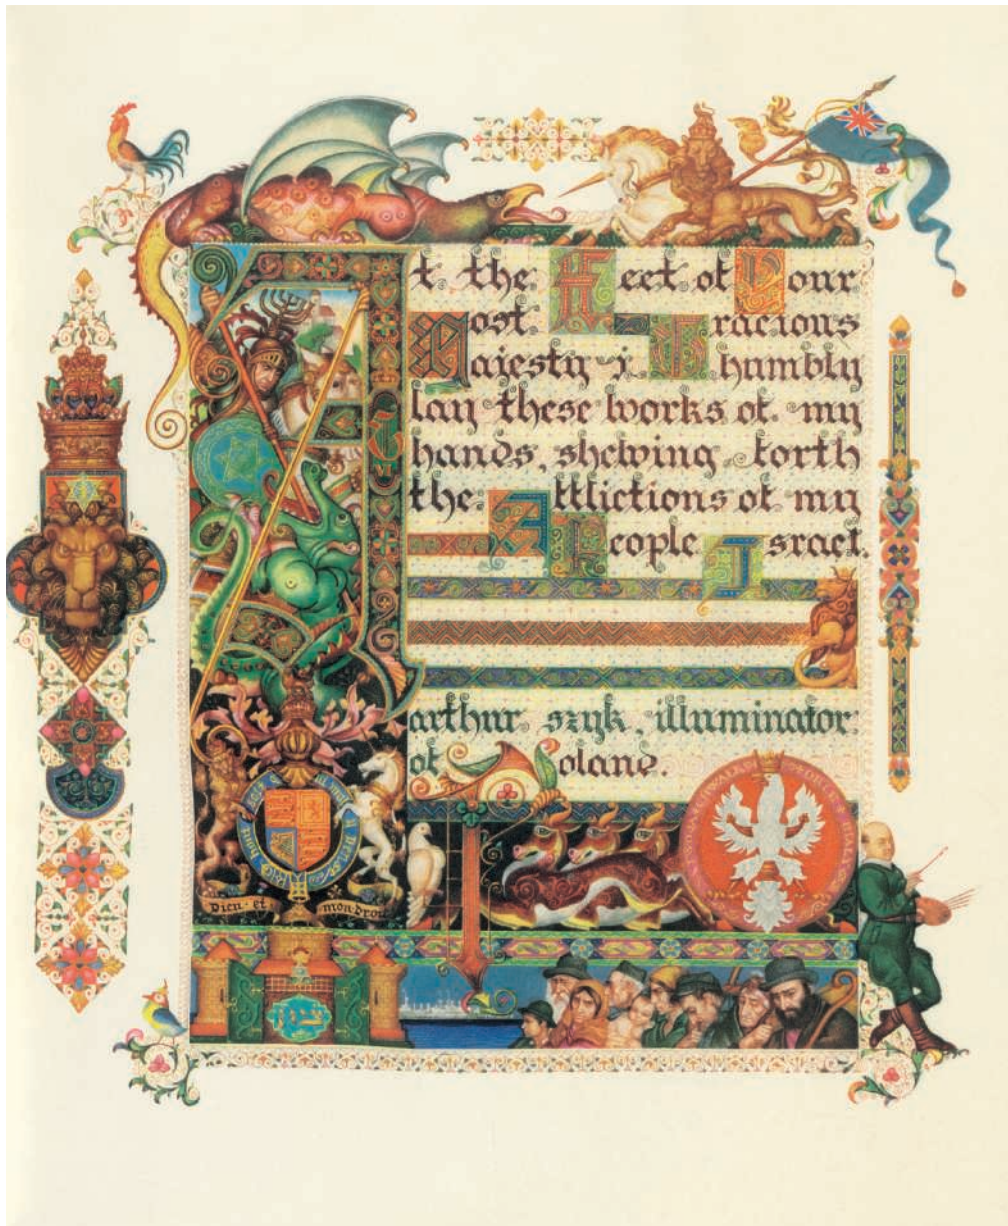 At the Feet of Your
Most Gracious
Majesty i humbly
lay these works of my
hands, shewing forth
the Afflictions of my
People Israel.
arthur szyk, illuminator
of Poland.
Dieu et mon Droit